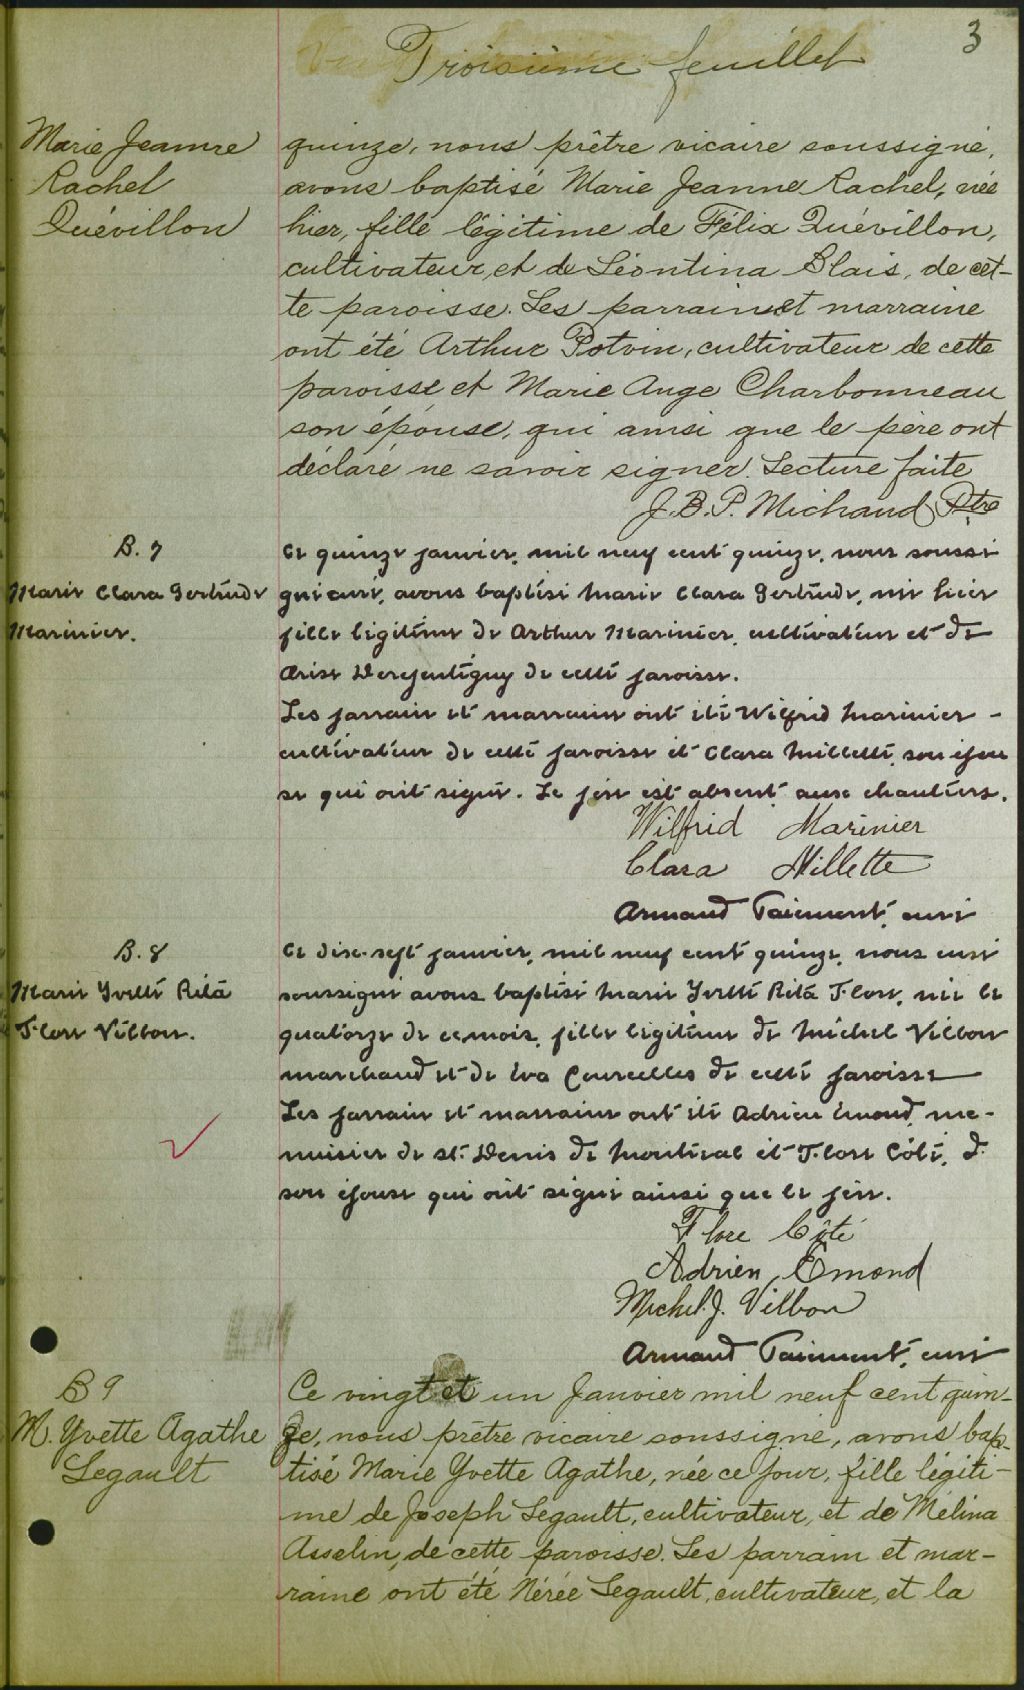 3
Troisième feuillet
Marie Jeanne
Rachel
Quévillon
quinze, nous prêtre vicaire soussigné,
avons baptisé Marie Jeanne Rachel, née
hier, fille légitime de Félix Quévillon,
cultivateur, et de Léontina Blais, de cet-
te paroisse. Les parrain et marraine
ont été Arthur Potvin, cultivateur de cette
paroisse et Marie Ange Charbonneau
son épouse, qui ainsi que le père ont
déclaré ne savoir signer. Lecture faite
J. B. P. Michaud Ptre
B. 7
Marie Clara Gertrude
Marinier.
Ce quinze janvier, mil neuf cent quinze, nous soussi
gné curé, avons baptisé Marie Clara Gertrude, née hier
fille légitime de Arthur Marinier, cultivateur et de
Desjentigny de cette paroisse.
Les parrain et marraine ont été Wilfrid Marinier -
cultivateur de cette paroisse et Clara Millette, son épou
se qui ont signé. Le père est absent aux chantiers.
Wilfrid Marinier
Clara Millette
Armand Paiement, curé
B. 8
Marie Yvette Rita
Flore Vilbon.
Ce dix-sept janvier, mil neuf cent quinze, nous curé
soussigné avons baptisé Marie Yvette Rita Flore, née le
quatorze de ce mois, fille légitime de Michel Vilbon
marchand et de Eva Courcelles de cette paroisse
Les parrain et marraine ont été Adrien Emond, me-
nuisier de St. Denis de Montréal et Flore Côté,
son épouse qui ont signé ainsi que le père.
Flore Côté
Adrien Emond
Michel J. Vilbon
Armand Paiement, curé
B 9
M. Yvette Agathe
Legault
Ce vingt et un Janvier mil neuf cent quin-
ze, nous prêtre vicaire soussigné, avons bap-
tisé Marie Yvette Agathe, née ce jour, fille légiti-
me de Joseph Legault, cultivateur, et de Mélina
Asselin, de cette paroisse. Les parrain et mar-
raine ont été Nérée Legault, cultivateur, et la